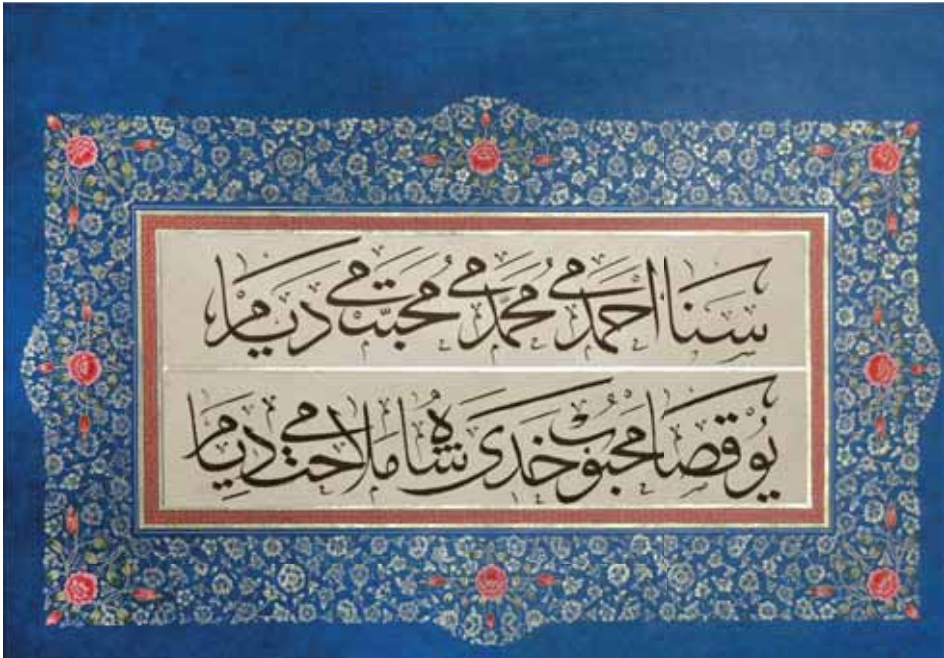 سَنَا اَحْمَدْمِی مُحَمَّدْمِی مُحَبَّتْمِی دَیَامْ
یُوقْصَا مَحْبُوبِ خُدَی شَاهُ مَالَاحَتْمِی دِیَامْ